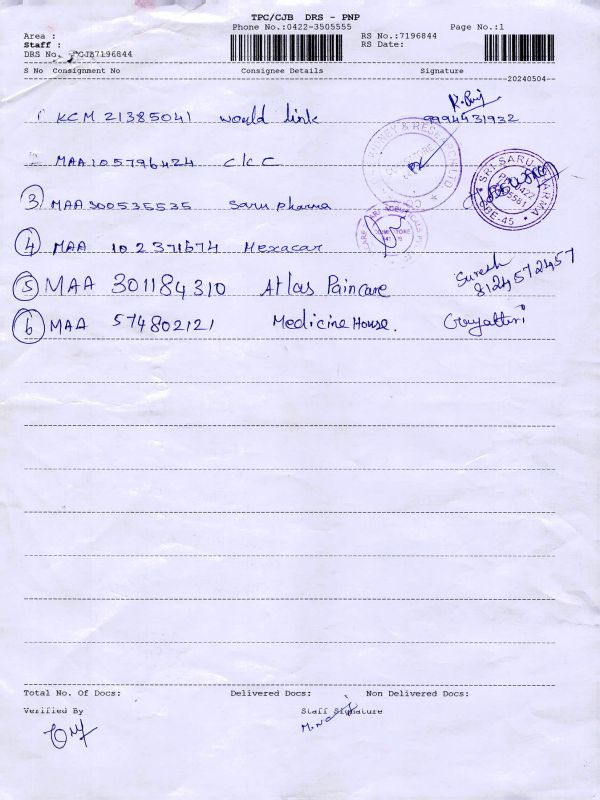 TPC/CJB DRS - PNP
Phone No.:0422-3505555 Page No.:1
Area : RS No.:7196844
Staff : RS Date:
DRS No. 7196844
S No Consignment No Consignee Details Signature
20240504
1 KCM 21385041 would link 9994931932
2 MAA 105796424 C K C
3 MAA 300535535 Saru pharma
4 MAA 102371674 Mexacar
5 MAA 301184310 Atlas Paincare Suresh 8124572457
6 MAA 574802121 Medicine House. Gayathri
Total No. Of Docs: Delivered Docs: Non Delivered Docs:
Verified By Staff Signature